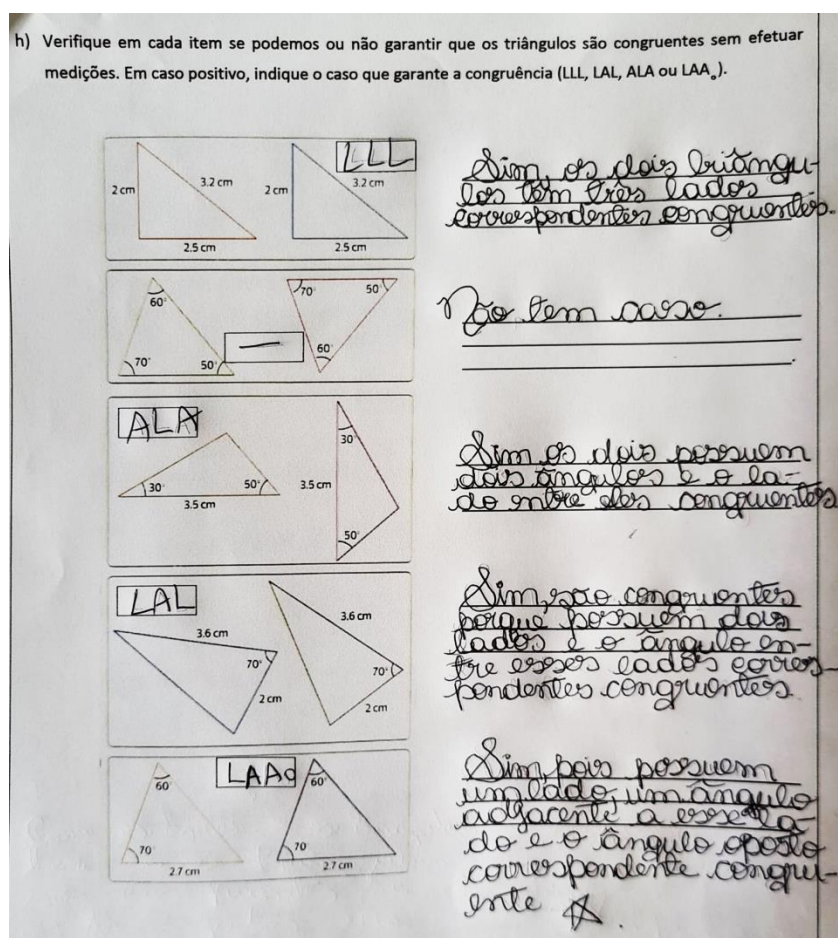 h) Verifique em cada item se podemos ou não garantir que os triângulos são congruentes sem efetuar
medições. Em caso positivo, indique o caso que garante a congruência (LLL, LAL, ALA ou LAAₒ).
LLL
2 cm
3.2 cm
2.5 cm
2 cm
3.2 cm
2.5 cm
Sim, os dois triângu-
los têm três lados
correspondentes congruentes.
60°
70°
50°
—
70°
50°
60°
Não tem caso.
ALA
30°
50°
3.5 cm
30°
3.5 cm
50°
Sim os dois possuem
dois ângulos e o la-
do entre eles congruentes
LAL
3.6 cm
70°
2 cm
3.6 cm
70°
2 cm
Sim, são congruentes
porque possuem dois
lados e o ângulo en-
tre esses lados corres-
pondentes congruentes
LAAo
60°
70°
2.7 cm
60°
70°
2.7 cm
Sim, pois possuem
um lado, um ângulo
adjacente a esse la-
do e o ângulo oposto
correspondente congru-
ente